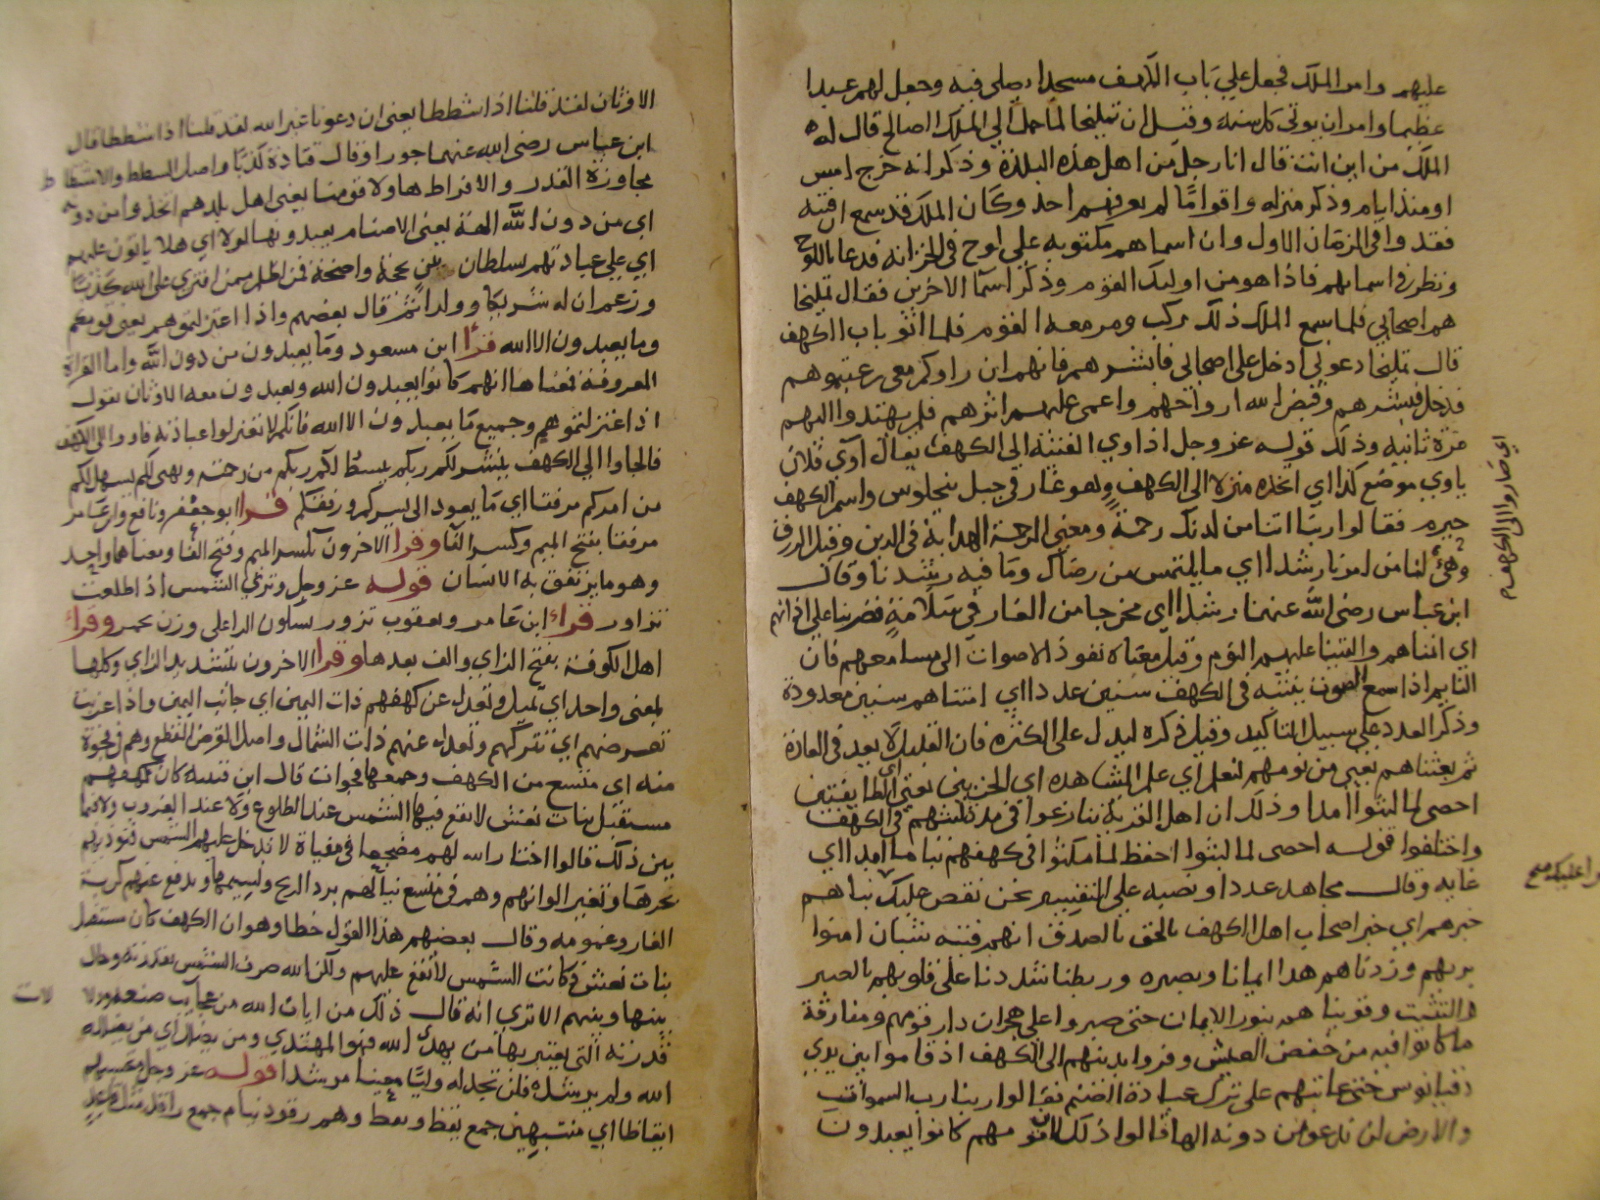 عليهم وامر الملك فجعل علي باب الكهف مسجدا يصلى فيه وجعل لهم عيدا
عظيما وامر ان يوتى كل سنة وقيل ان تمليخا لما حمل الي الملك الصالح قال له
الملك من اين انت قال انا رجل من اهل هذه البلدة وذكر انه خرج امس
او منذ ايام وذكر منزله واقواما لم يعرفهم احد وكان الملك قد سمع ان فتية
فقدوا في الزمان الاول وان اسماهم مكتوبه علي لوح في الخزانه فدعا باللوح
ونظر في اسمايهم فاذا هو من اوليك القوم وذكر اسما الاخرين فقال تمليخا
هم اصحابي فلما سمع الملك ذلك ركب ومر معه القوم فلما اتو باب الكهف
قال تمليخا دعوني ادخل على اصحابي فابشرهم فانهم ان راوكم معى رعبتموهم
فدخل فبشرهم وقبض الله ارواحهم واعمى عليهم اثرهم فلم يهتدوا اليهم
مرة ثانيه وذلك قوله عز وجل اذ اوي الفتية الي الكهف يقال اوي فلان
ياوي موضع كذا اي اتخذه منزلا الى الكهف وهو غار في جبل بنجلوس واسم الكهف
اي صاروا الى الكهف
حيرم فقالوا ربنا اتنا من لدنك رحمة ومعني الرحمة الهداية في الدين وقيل الرزق
وهيئ لنا من امرنا رشدا اي ما يلتمس من رضاك وما فيه رشدنا وقال
ابن عباس رضي الله عنهما رشدا اي مخرجا من الغار في سلامة فضربنا علي اذانهم
اي انمناهم والقينا عليهم النوم وقيل معناه نفوذ الاصوات الى مسامعهم فان
النايم اذا سمع الصوت ينتبه في الكهف سنين عددا اي انمناهم سنين معدودة
وذكر العدد علي سبيل التاكيد وقيل ذكره ليدل على الكثره فان القليل لا يعد في العادة
ثم بعثناهم يعني من نومهم لنعلم اي علم المشاهده اي الحزبين يعني اي الطايفتين
احصى لما لبثوا امدا وذلك ان اهل القرية تنازعوا في مدة لبثهم في الكهف
واختلفوا قوله احصى لما لبثوا احفظ لما مكثوا في كهفهم نياما امدا اي
غايه وقال مجاهد عددا ونصبه علي التفسير نحن نقص عليك نباهم
خبرهم اي خبر اصحاب اهل الكهف بالحق بالصدق انهم فتية شبان امنوا
بربهم وزدناهم هدا ايمانا وبصيره وربطنا شددنا على قلوبهم بالصبر
والتثبيت وقويناهم بنور الايمان حتى صبروا على هجران دار قومهم ومفارقة
ما كانوا فيه من خفض العيش وفروا بدينهم الى الكهف اذ قاموا بين يدي
دقيانوس حين عاتبهم على ترك عبادة الصنم فقالوا ربنا رب السموات
والارض لن ندعو من دونه الها قالوا ذلك لان قومهم كانوا يعبدون
الاوثان لقد قلنا اذا شططا يعني ان دعونا غير الله لقد قلنا اذا شططا قال
ابن عباس رضي الله عنهما جورا وقال قتادة كذبا واصل الشطط والاشطاط
مجاوزة القدر والافراط هاولا قومنا يعني اهل بلدهم اتخذوا من دونه
اي من دون الله الهة يعني الاصنام يعبدونها لولا اي هلا ياتون عليهم
اي علي عبادتهم بسلطان بين بحجة واضحة فمن اظلم ممن افتري على الله كذبا
وزعم ان له شريكا وولدا ثم قال بعضهم واذا اعتزلتموهم يعني قومهم
وما يعبدون الا الله قرأ ابن مسعود وما يعبدون من دون الله واما القراة
المعروفة فمعناها انهم كانوا يعبدون الله ويعبدون معه الاوثان يقول
اذ اعتزلتموهم وجميع ما يعبدون الا الله فانكم لا تعتزلوا عبادته فاووا الى الكهف
فالجاوا الي الكهف ينشر لكم ربكم يبسط لكم ربكم من رحمته ويهيئ لكم يسهل لكم
من امركم مرفقا اي ما يعود الي يسركم ورفقكم قرا ابو جعفر ونافع وابن عامر
مرفقا بفتح الميم وكسر الفا وقرا الاخرون بكسر الميم وفتح الفا ومعناهما واحد
وهو ما يرتفق به الانسان قوله عز وجل وتري الشمس اذا طلعت
تزاور قراء ابن عامر ويعقوب تزور بسكون الزا على وزن تحمر وقراء
اهل الكوفة بفتح الزاي والف بعدها وقرا الاخرون بتشديد الزاي وكلها
بمعنى واحد اي تميل وتعدل عن كهفهم ذات اليمين اي جانب اليمين واذا غربت
تقرضهم اي تتركهم وتعدل عنهم ذات الشمال واصل القرض القطع وهم في فجوة
منه اي متسع من الكهف وجمعها فجوات قال ابن قتيبه كان كهفهم
مستقبل بنات نعش لا تقع فيها الشمس عند الطلوع ولا عند الغروب ولا فيما
بين ذلك قالوا اختار الله لهم مضجعا في مقناة لا تدخل عليهم الشمس فتوذيهم
بحرها وتغير الوانهم وهم في متسع ينالهم برد الريح ونسيمها ويدفع عنهم كربة
الغار وغمومه وقال بعضهم هذا القول خطا وهو ان الكهف كان مستقبل
بنات نعش فكانت الشمس لا تقع عليهم ولكن الله صرف الشمس بقدرته وحال
بينها وبينهم الا تري انه قال ذلك من ايات الله من عجايب صنعه ودلا
لات
قدرته التي يعتبر بها من يهد الله فهو المهتدي ومن يضلل اي من يضلله
الله ولم يرشده فلن تجد له وليا معينا مرشدا قوله عز وجل وتحسبهم
ايقاظا اي منتبهين جمع يقظ ويقظ وهم رقود نيام جمع راقد مثل قاعد